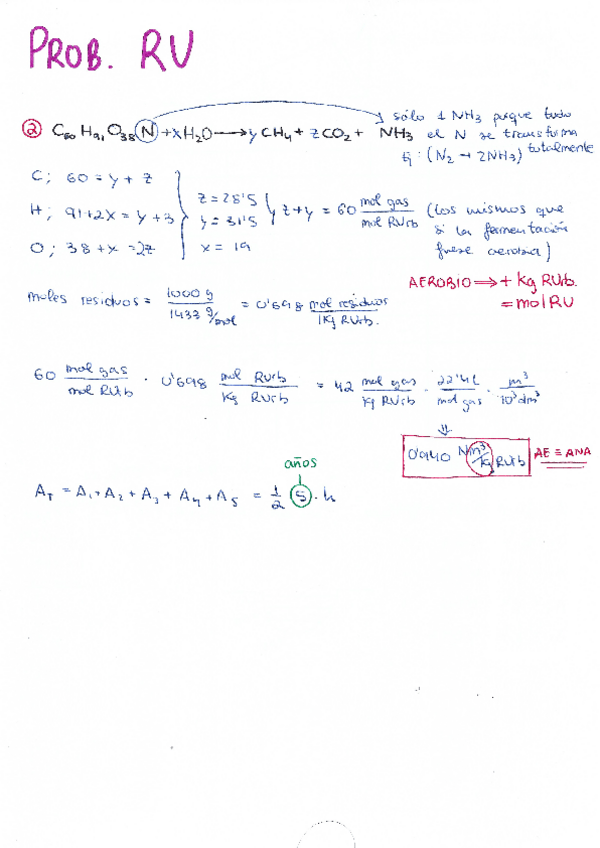 PROB. RU
② C60 H91 O38 N + xH2O → y CH4 + zCO2 + NH3
sólo 1 NH3 porque todo
el N se transforma
totalmente
ej: (N2 → 2NH3)
C; 60 = y + z
H; 91+2x = y+3
O; 38+x = 2z
z = 28'5
y = 31'5
x = 19
z+y = 60 mol gas / mol RUrb
(los mismos que
si la fermentación
fuese aerobia)
AEROBIO ⟹ + kg RUrb.
= mol RU
moles residuos = 1000 g / 1433 g/mol = 0'698 mol residuos / 1Kg RUrb.
60 mol gas / mol RUrb · 0'698 mol RUrb / Kg RUrb = 42 mol gas / Kg RUrb · 22'4 L / mol gas · m³ / 10³ dm³
⇓
0'940 Nm³/Kg RUrb
AE ≡ ANA
años
AT = A1 + A2 + A3 + A4 + A5 = 1/2 5 · h